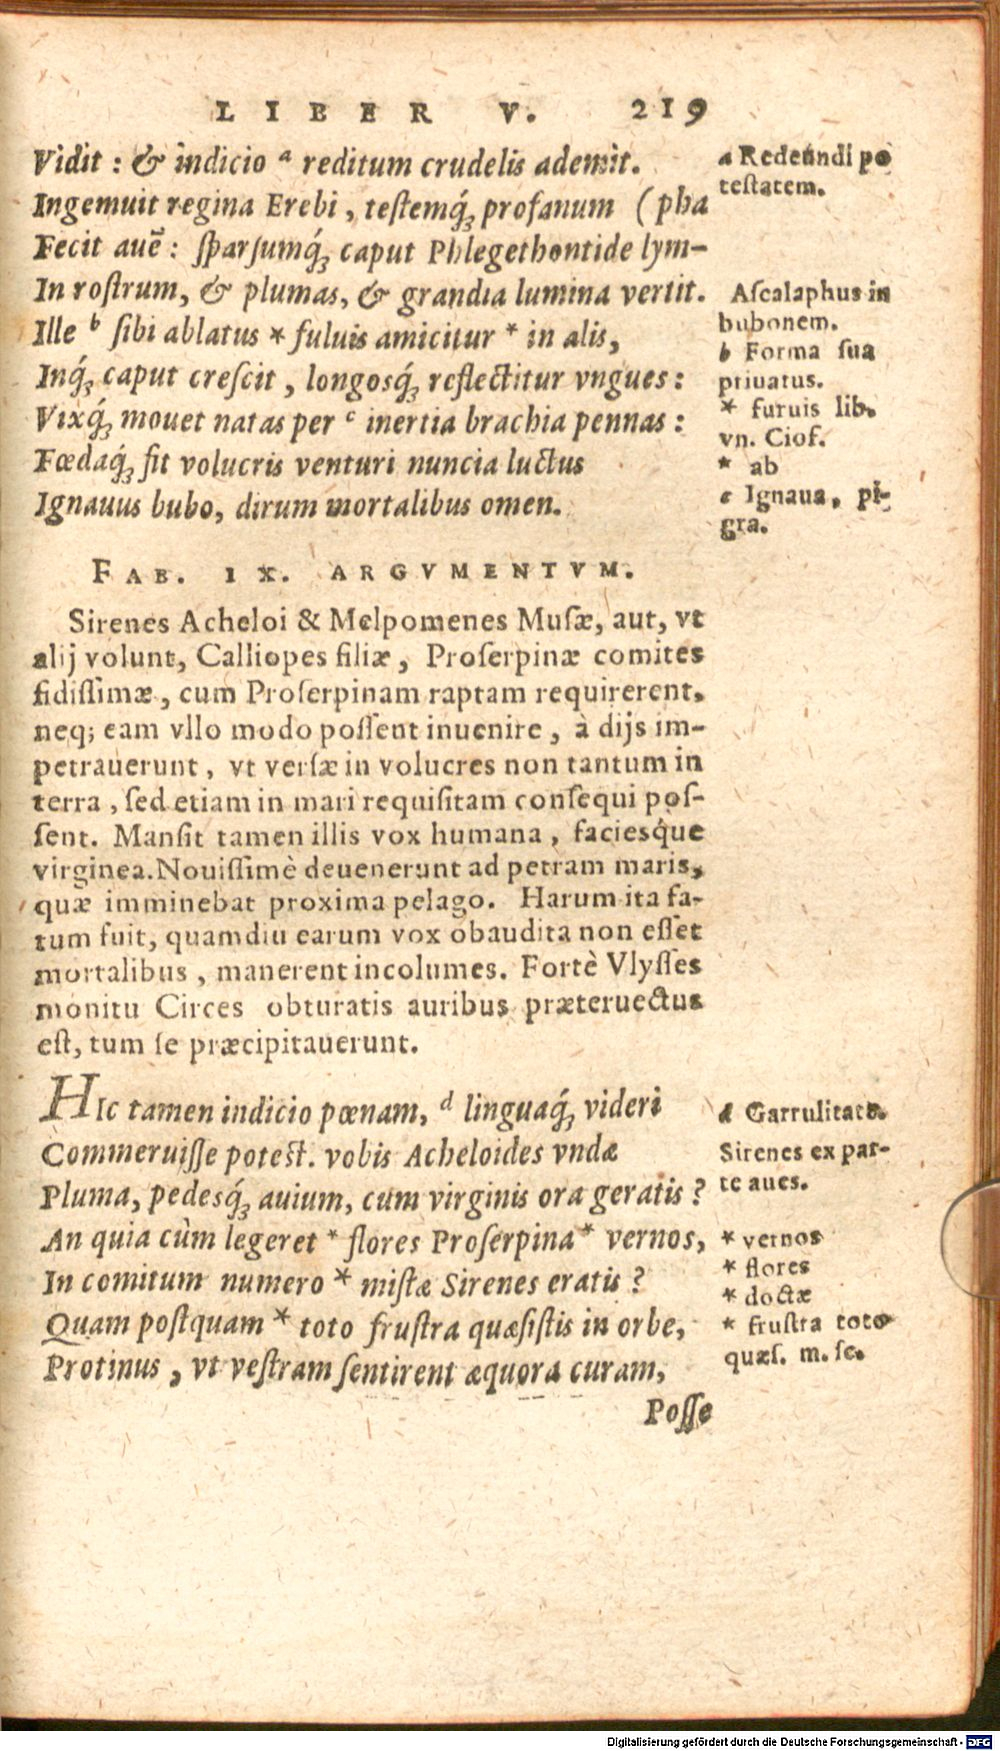 LIBER V. 219
Vidit : & indicio ᵃ reditum crudelis ademit.
Ingemuit regina Erebi, testemq́ꝫ profanum (pha
Fecit auē : sparsumq́ꝫ caput Phlegethontide lym-
In rostrum, & plumas, & grandia lumina vertit.
Ille ᵇ sibi ablatus * fuluis amicitur * in alis,
Inq́ꝫ caput crescit, longosq́ꝫ reflectitur vngues :
Vixq́ꝫ mouet natas per ᶜ inertia brachia pennas :
Fœdaq́ꝫ fit volucris venturi nuncia luctus
Ignauus bubo, dirum mortalibus omen.
a Redeundi po
testatem.
Ascalaphus in
bubonem.
b Forma sua
priuatus.
* furuis lib.
vn. Ciof.
* ab
c Ignaua, pi-
gra.
FAB. IX. ARGVMENTVM.
Sirenes Acheloi & Melpomenes Musæ, aut, vt
alij volunt, Calliopes filiæ, Proserpinæ comites
fidissimæ, cum Proserpinam raptam requirerent,
neq; eam vllo modo possent inuenire, à dijs im-
petrauerunt, vt versæ in volucres non tantum in
terra, sed etiam in mari requisitam consequi pos-
sent. Mansit tamen illis vox humana, faciesq́ue
virginea. Nouissimè deuenerunt ad petram maris,
quæ imminebat proxima pelago. Harum ita fa-
tum fuit, quamdiu earum vox obaudita non esset
mortalibus, manerent incolumes. Fortè Vlysses
monitu Circes obturatis auribus præteruectus
est, tum se præcipitauerunt.
HIc tamen indicio pœnam, ᵈ linguaq́ꝫ videri
Commeruisse potest. vobis Acheloides vndæ
Pluma, pedesq́ꝫ auium, cum virginis ora geratis ?
An quia cùm legeret * flores Proserpina * vernos,
In comitum numero * mistæ Sirenes eratis ?
Quam postquam * toto frustra quæsistis in orbe,
Protinus, vt vestram sentirent æquora curam,
d Garrulitate.
Sirenes ex par-
te aues.
* vernos
* flores
* doctæ
* frustra toto
quæs. m. se.
Posse
Digitalisierung gefördert durch die Deutsche Forschungsgemeinschaft - DFG